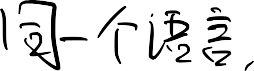 同一个语言，